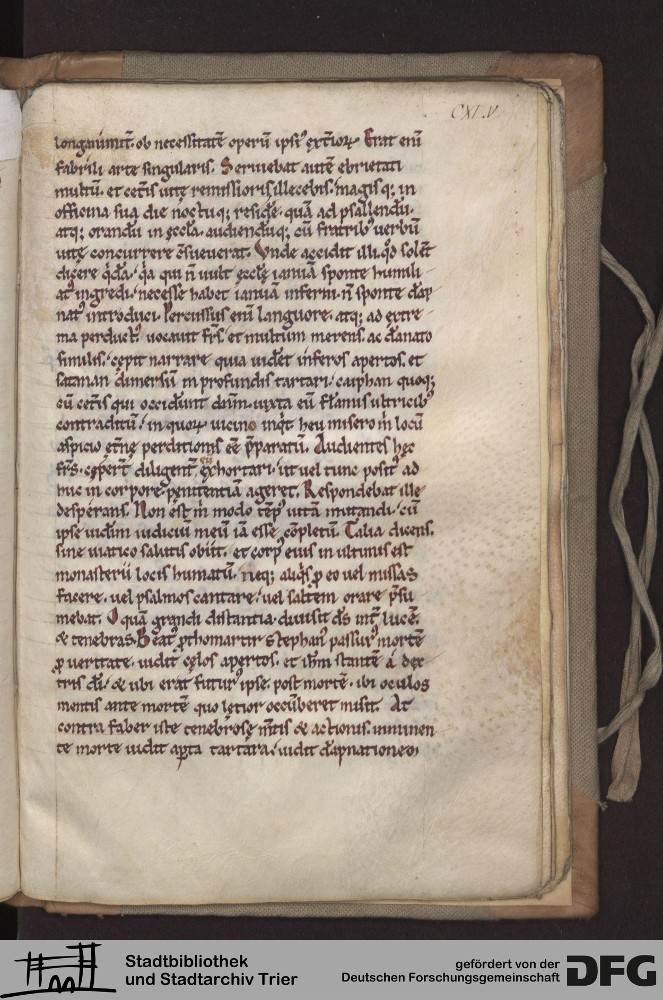 CXLV
longanimit̄. ob necessitatē operū ipsi᾽ exterior̄. Erat eni
fabrili arte singularis. Seruiebat autē ebrietati
multū. et cet̄is uite remissioris illecebris. magisq; in
officina sua die noctuq; residē. quā ad psallendū.
atq; orandū in eccl̄a. audiendūq; cū fratrib᾽ uerbū
uite concurrere c̄sueuerat. Vnde accidit illi. qd̄ solēt
dicere qdā. qa qui n̄ uult eccl̄e ianuā sponte humili
at᾽ ingredi. necesse habet ianuā inferni. n̄ sponte dāp
nat᾽ introduci. Percussus eni languore. atq; ad extre
ma perduct᾽. uocauit fr̄s. et multum merens. ac dānato
similis. cepit narrare quia uidēt inferos apertos. et
satanan dimersū in profundis tartari. caiphan quoq;
cū cet̄is qui occidunt dn̄m. iuxta eū flamis ultricib᾽
contraditū. in quor̄ uicino inqt heu misero m̄ locū
aspicio et̄ne perditionis eē p̄paratū. Audientes hec
fr̄s. ceper̄t diligent̄ exhortari. ut uel tunc posit᾽ ad
huc in corpore. penitentiā ageret. Respondebat ille
desperans. Non est m̄ modo tēp᾽ uitā mutandi. cū
ipse uidim iudiciū meū iā esse cōpletū. Talia dicens.
sine uiatico salutis obiit. et corp᾽ eius in ultimis est
monasterii locis humatū. neq; aliqs p eo uel missas
facere. uel psalmos cantare. uel saltem orare p̄su
mebat. O quā grandi distantia diuisit ds̄ int̄ lucē.
& tenebras. Beat᾽ p̄thomartir stephan᾽ passur᾽ mortē
p ueritate. uidit celos apertos. et ihm̄ stantē a dex
tris di᾽. & ubi erat futur᾽ ipse. post mortē. ibi oculos
mentis ante mortē quo letior occūberet misit. At
contra faber iste tenebrose m̄tis & actionis. imminen
te morte uidit apta tartara. uidit dāpnationem
Stadtbibliothek
und Stadtarchiv Trier
gefördert von der
Deutschen Forschungsgemeinschaft
DFG